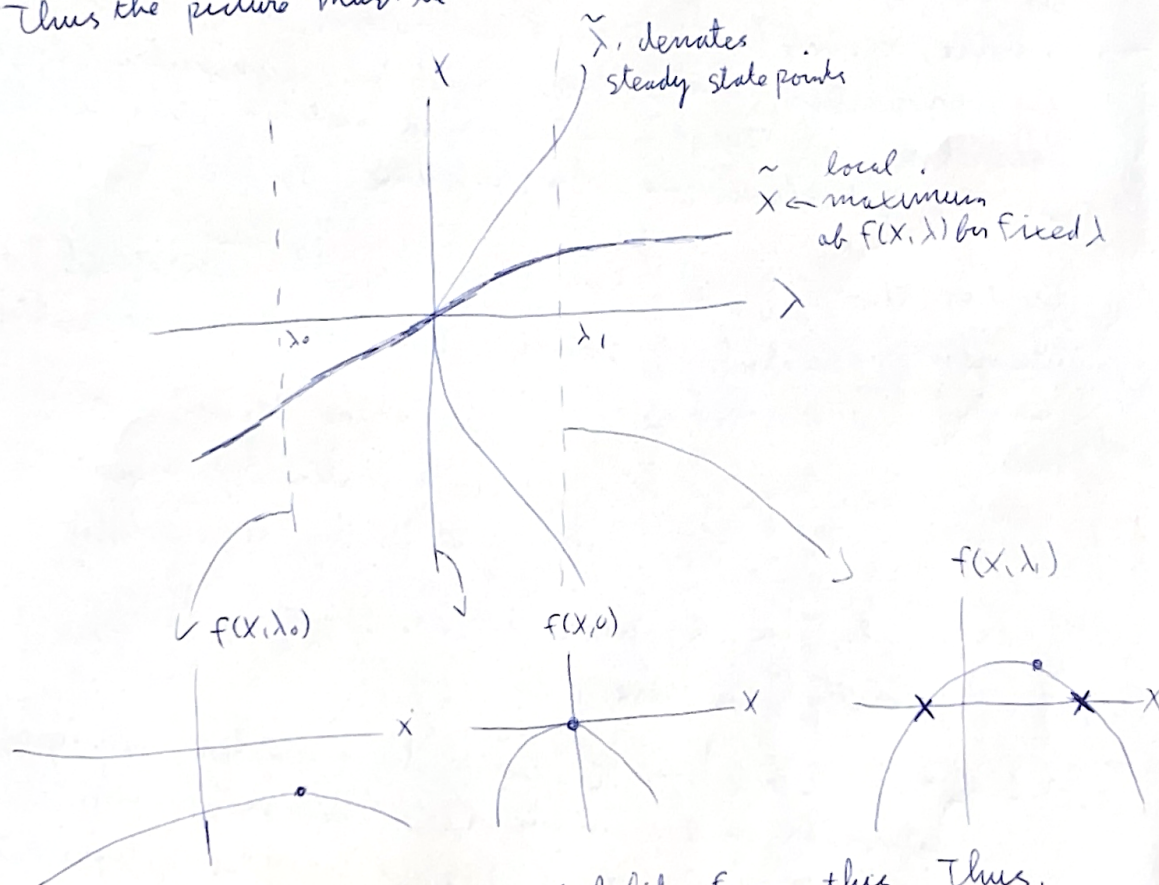 Thus the picture must be
X
λ̃, denotes
steady state points
~ local
X ← maximum
of f(X, λ) for fixed λ
λ
λ₀
λ₁
f(X, λ₁)
f(X, λ₀)
f(X, 0)
X
X
X
this Thus,